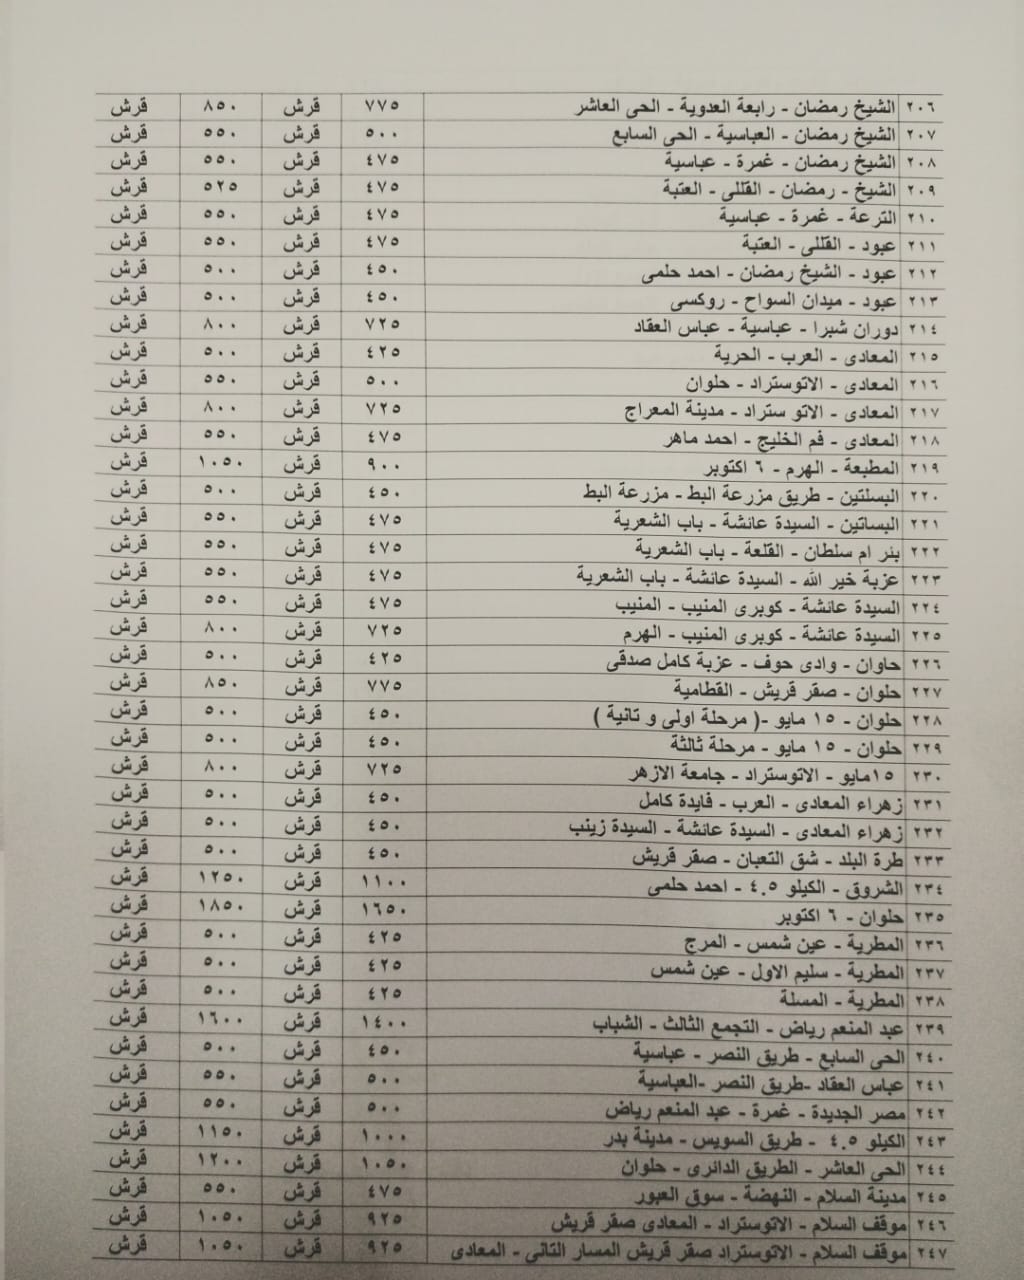 ٢٠٦ الشيخ رمضان - رابعة العدوية - الحى العاشر ٧٧٥ قرش ٨٥٠ قرش
٢٠٧ الشيخ رمضان - العباسية - الحى السابع ٥٠٠ قرش ٥٥٠ قرش
٢٠٨ الشيخ رمضان - غمرة - عباسية ٤٧٥ قرش ٥٥٠ قرش
٢٠٩ الشيخ - رمضان - القللى - العتبة ٤٧٥ قرش ٥٢٥ قرش
٢١٠ الترعة - غمرة - عباسية ٤٧٥ قرش ٥٥٠ قرش
٢١١ عبود - القللى - العتبة ٤٧٥ قرش ٥٥٠ قرش
٢١٢ عبود - الشيخ رمضان - احمد حلمى ٤٥٠ قرش ٥٠٠ قرش
٢١٣ عبود - ميدان السواح - روكسى ٤٥٠ قرش ٥٠٠ قرش
٢١٤ دوران شبرا - عباسية - عباس العقاد ٧٢٥ قرش ٨٠٠ قرش
٢١٥ المعادى - العرب - الحرية ٤٢٥ قرش ٥٠٠ قرش
٢١٦ المعادى - الاتوستراد - حلوان ٥٠٠ قرش ٥٥٠ قرش
٢١٧ المعادى - الاتو ستراد - مدينة المعراج ٧٢٥ قرش ٨٠٠ قرش
٢١٨ المعادى - فم الخليج - احمد ماهر ٤٧٥ قرش ٥٥٠ قرش
٢١٩ المطبعة - الهرم - ٦ اكتوبر ٩٠٠ قرش ١٠٥٠ قرش
٢٢٠ البسلتين - طريق مزرعة البط - مزرعة البط ٤٥٠ قرش ٥٠٠ قرش
٢٢١ البساتين - السيدة عائشة - باب الشعرية ٤٧٥ قرش ٥٥٠ قرش
٢٢٢ بئر ام سلطان - القلعة - باب الشعرية ٤٧٥ قرش ٥٥٠ قرش
٢٢٣ عزبة خير الله - السيدة عائشة - باب الشعرية ٤٧٥ قرش ٥٥٠ قرش
٢٢٤ السيدة عائشة - كوبرى المنيب - المنيب ٤٧٥ قرش ٥٥٠ قرش
٢٢٥ السيدة عائشة - كوبرى المنيب - الهرم ٧٢٥ قرش ٨٠٠ قرش
٢٢٦ حاوان - وادى حوف - عزبة كامل صدقى ٤٢٥ قرش ٥٠٠ قرش
٢٢٧ حلوان - صقر قريش - القطامية ٧٧٥ قرش ٨٥٠ قرش
٢٢٨ حلوان - ١٥ مايو -( مرحلة اولى و تانية ) ٤٥٠ قرش ٥٠٠ قرش
٢٢٩ حلوان - ١٥ مايو - مرحلة ثالثة ٤٥٠ قرش ٥٠٠ قرش
٢٣٠ ١٥مايو - الاتوستراد - جامعة الازهر ٧٢٥ قرش ٨٠٠ قرش
٢٣١ زهراء المعادى - العرب - فايدة كامل ٤٥٠ قرش ٥٠٠ قرش
٢٣٢ زهراء المعادى - السيدة عائشة - السيدة زينب ٤٥٠ قرش ٥٠٠ قرش
٢٣٣ طرة البلد - شق التعبان - صقر قريش ٤٥٠ قرش ٥٠٠ قرش
٢٣٤ الشروق - الكيلو ٤.٥ - احمد حلمى ١١٠٠ قرش ١٢٥٠ قرش
٢٣٥ حلوان - ٦ اكتوبر ١٦٥٠ قرش ١٨٥٠ قرش
٢٣٦ المطرية - عين شمس - المرج ٤٢٥ قرش ٥٠٠ قرش
٢٣٧ المطرية - سليم الاول - عين شمس ٤٢٥ قرش ٥٠٠ قرش
٢٣٨ المطرية - المسلة ٤٢٥ قرش ٥٠٠ قرش
٢٣٩ عبد المنعم رياض - التجمع الثالث - الشباب ١٤٠٠ قرش ١٦٠٠ قرش
٢٤٠ الحى السابع - طريق النصر - عباسية ٤٥٠ قرش ٥٠٠ قرش
٢٤١ عباس العقاد -طريق النصر -العباسية ٥٠٠ قرش ٥٥٠ قرش
٢٤٢ مصر الجديدة - غمرة - عبد المنعم رياض ٥٠٠ قرش ٥٥٠ قرش
٢٤٣ الكيلو ٤.٥ - طريق السويس - مدينة بدر ١٠٠٠ قرش ١١٥٠ قرش
٢٤٤ الحى العاشر - الطريق الدائرى - حلوان ١٠٥٠ قرش ١٢٠٠ قرش
٢٤٥ مدينة السلام - النهضة - سوق العبور ٤٧٥ قرش ٥٥٠ قرش
٢٤٦ موقف السلام - الاتوستراد - المعادى صقر قريش ٩٢٥ قرش ١٠٥٠ قرش
٢٤٧ موقف السلام - الاتوستراد صقر قريش المسار التانى - المعادى ٩٢٥ قرش ١٠٥٠ قرش